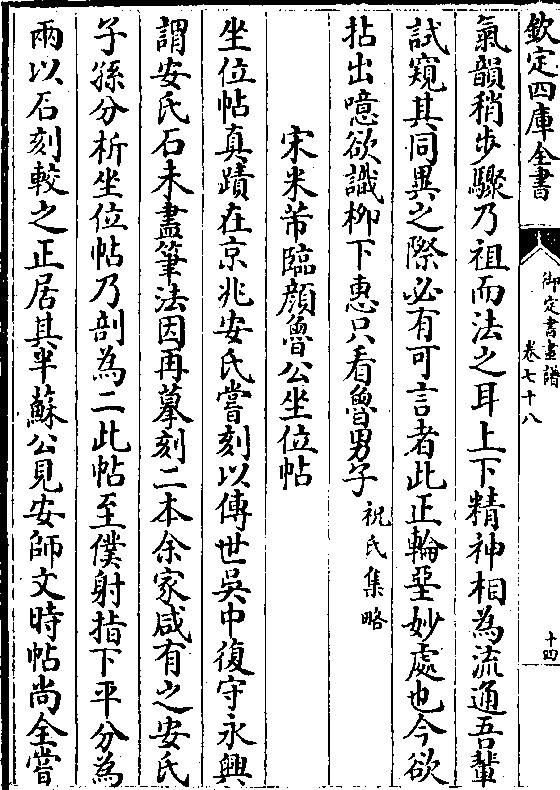 欽定四庫全書
御定書畫譜
卷七十八
十四
氣韻稍步驟乃祖而法之耳上下精神相為流通吾輩
試窺其同異之際必有可言者此正輪堊妙處也今欲
拈出噫欲識柳下惠只看魯男子祝氏集略
宋米芾臨顔魯公坐位帖
坐位帖真蹟在京兆安氏嘗刻以傳世吳中復守永興
謂安氏石未盡筆法因再摹刻二本余家咸有之安氏
子孫分析坐位帖乃剖為二此帖至僕射指下平分為
兩以石刻較之正居其半蘇公見安師文時帖尚全嘗